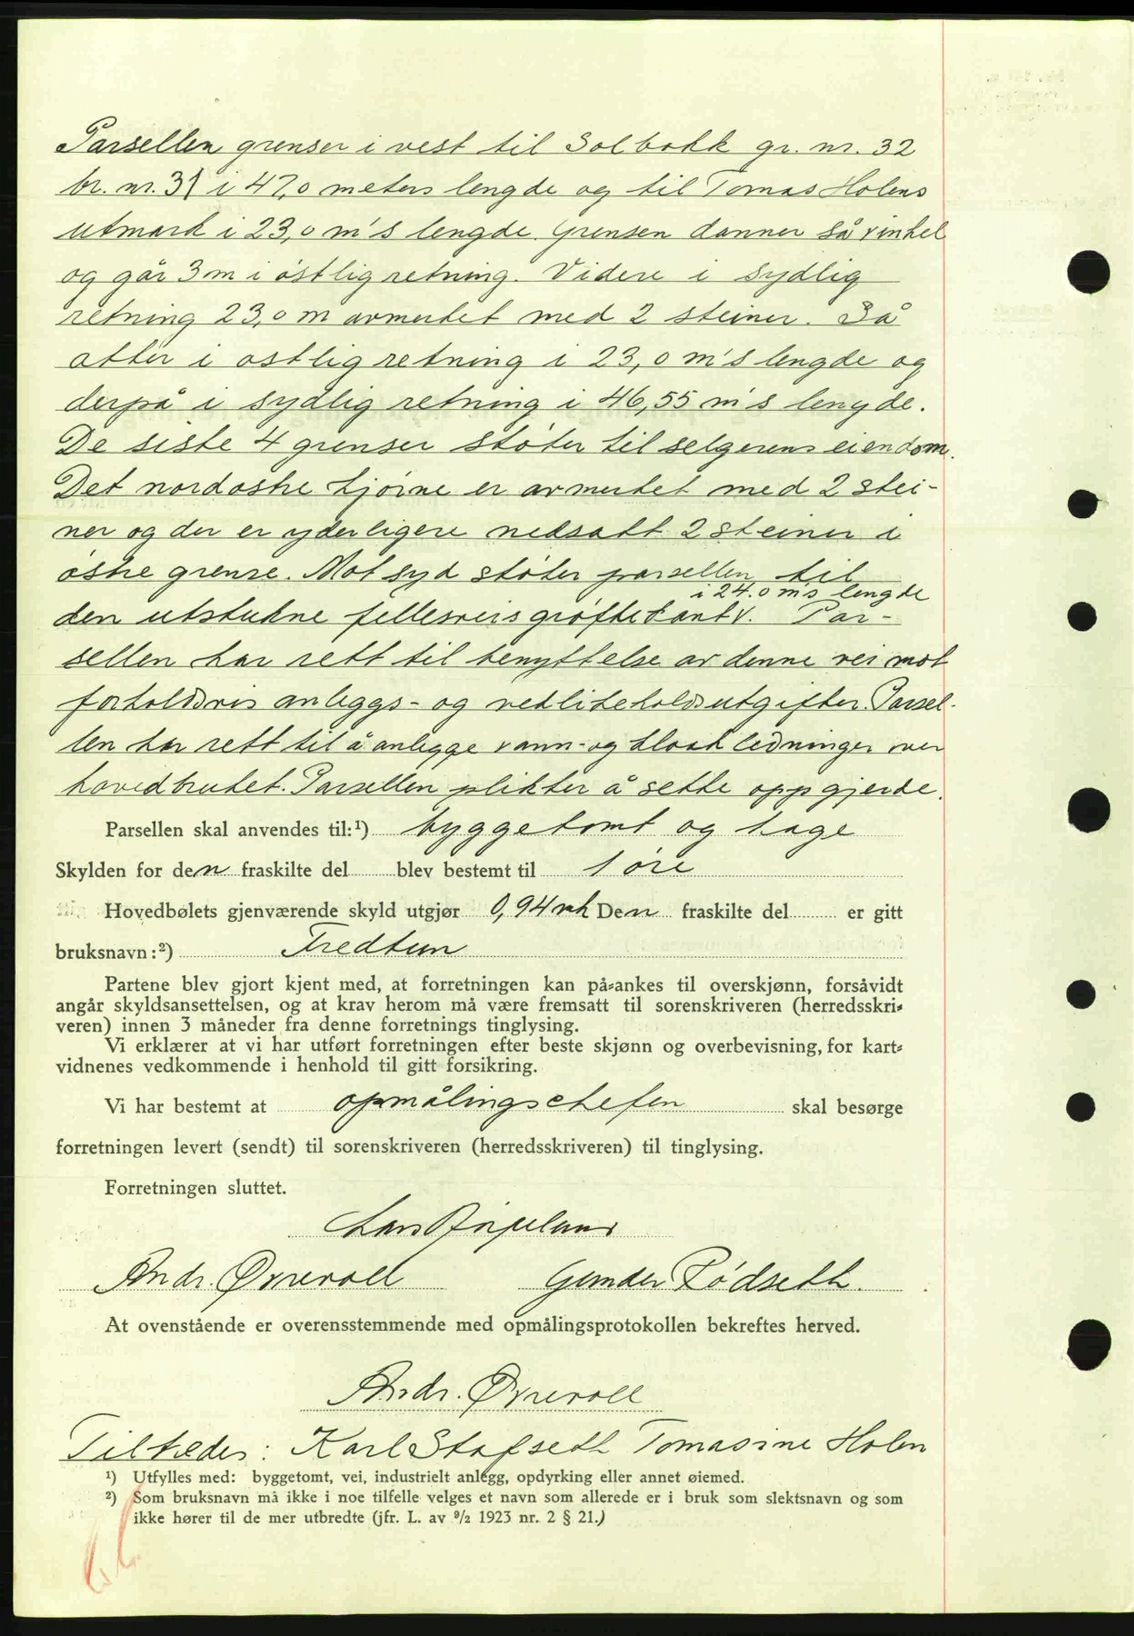 Parsellen grenser i vest til Solbakk gr. nr. 32
br. nr. 31 i 47,0 meters lengde og til Tomas Holens
utmark i 23,0 m's lengde. Grensen danner så vinkel
og går 3 m i østlig retning. Videre i sydlig
retning 23,0 m avmerket med 2 steiner. Så
atter i østlig retning i 23,0 m's lengde og
derpå i sydlig retning i 46,55 m's lengde.
De siste 4 grenser støter til selgerens eiendom.
Det nordøstre hjørne er avmerket med 2 stei-
ner og der er yderligere nedsatt 2 steiner i
østre grense. Mot syd støter parsellen til
i 24.0 m's lengde
den utstukne fellesveis grøftekant v. Par-
sellen har rett til benyttelse av denne vei mot
forholdsvis anleggs- og vedlikeholdsutgifter. Parsel-
len har rett til å anlegge vann- og kloakledninger over
hovedbruket. Parsellen plikter å sette opp gjerde.
Parsellen skal anvendes til:¹) byggetomt og hage
Skylden for den fraskilte del blev bestemt til 1 øre
Hovedbølets gjenværende skyld utgjør 0,94 mk Den fraskilte del er gitt
bruksnavn:²) Fredtun
Partene blev gjort kjent med, at forretningen kan på-ankes til overskjønn, forsåvidt
angår skyldsansettelsen, og at krav herom må være fremsatt til sorenskriveren (herredsskri-
veren) innen 3 måneder fra denne forretnings tinglysing.
Vi erklærer at vi har utført forretningen efter beste skjønn og overbevisning, for kart-
vidnenes vedkommende i henhold til gitt forsikring.
Vi har bestemt at opmålingschefen skal besørge
forretningen levert (sendt) til sorenskriveren (herredsskriveren) til tinglysing.
Forretningen sluttet.
Lars
Andr. Øvrevoll Gunder Rødseth.
At ovenstående er overensstemmende med opmålingsprotokollen bekreftes herved.
Andr. Øvrevoll
Tiltredes: Karl Stafseth Tomasine Holen
¹) Utfylles med: byggetomt, vei, industrielt anlegg, opdyrking eller annet øiemed.
²) Som bruksnavn må ikke i noe tilfelle velges et navn som allerede er i bruk som slektsnavn og som
ikke hører til de mer utbredte (jfr. L. av 9/2 1923 nr. 2 § 21.)